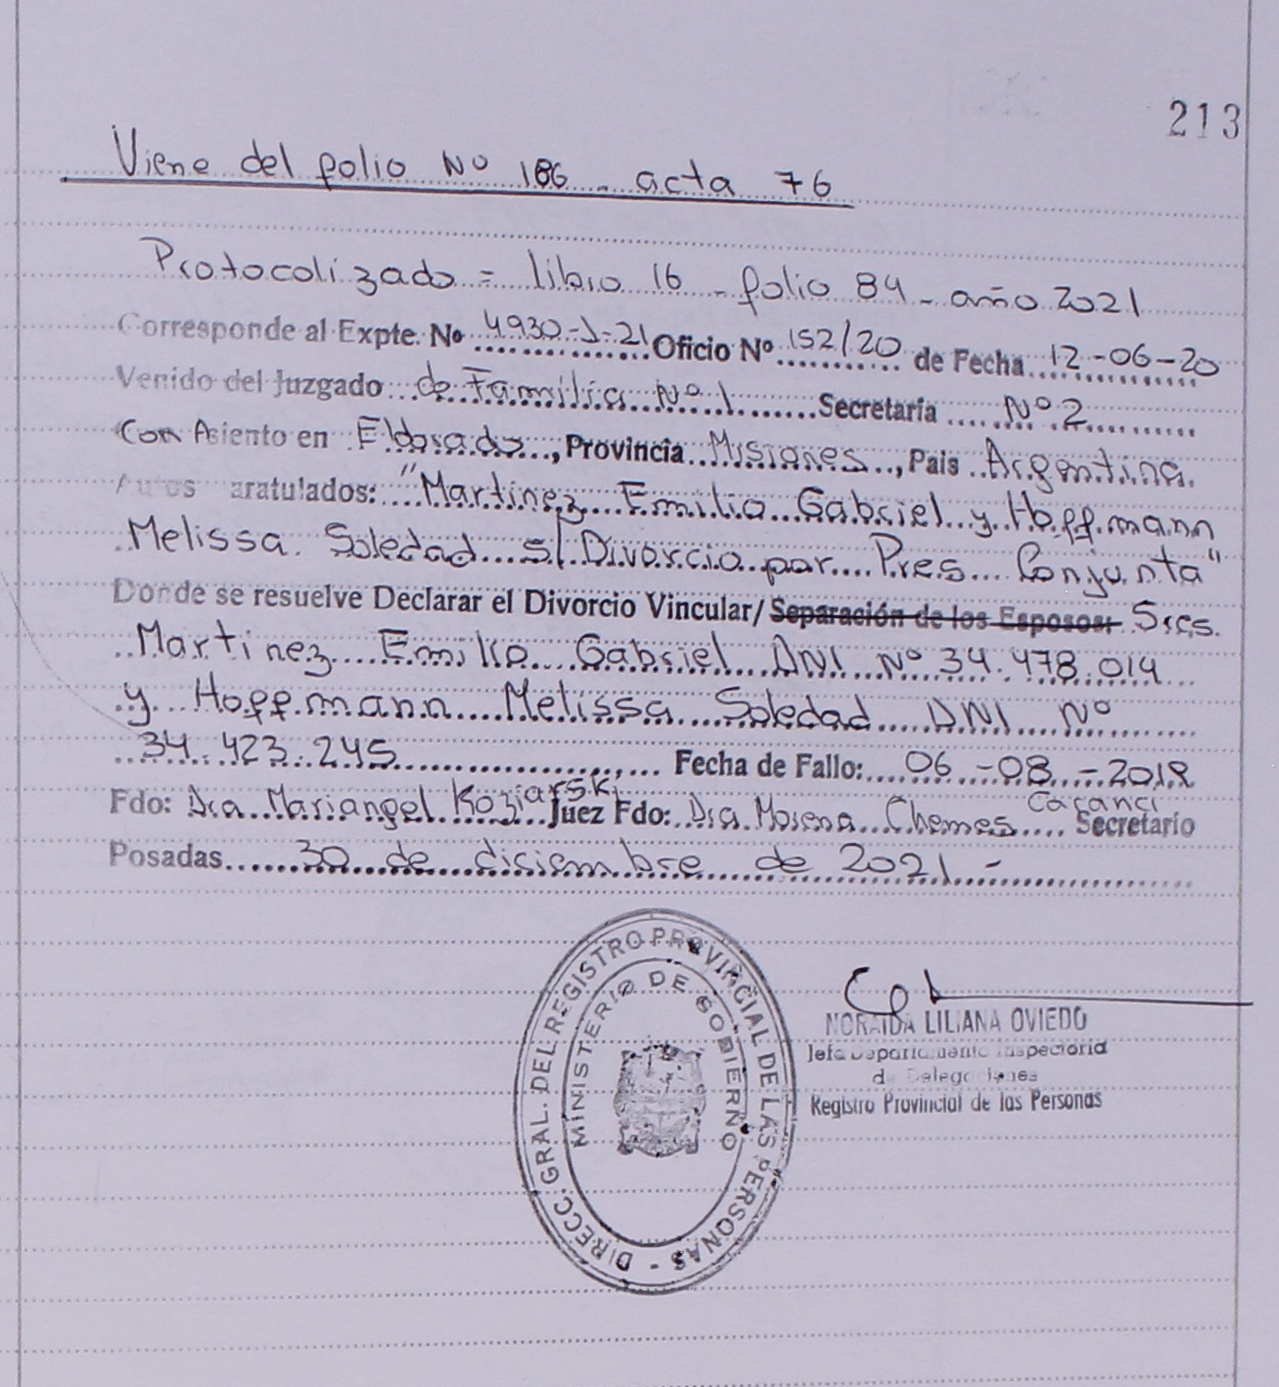 213
Viene del folio Nº 186 - acta 76
Protocolizado = libro 16 - folio 84 - año 2021
Corresponde al Expte. Nº 4930-J-21 Oficio Nº 152/20 de Fecha 12-06-20
Venido del Juzgado de Familia Nº 1 Secretaria Nº 2
Con Asiento en Eldorado, Provincia Misiones, Pais Argentina.
Autos aratulados: "Martinez Emilio Gabriel y Hoffmann
Melissa Soledad s/ Divorcio por Pres. Conjunta"
Donde se resuelve Declarar el Divorcio Vincular/ Separación de los Esposos: Sres.
Martinez Emilio Gabriel DNI Nº 34.478.014
y Hoffmann Melissa Soledad DNI Nº
34.423.245 Fecha de Fallo: 06-08-2018
Fdo: Dra. Mariangel Koziarski Juez Fdo: Dra Morena Chemes Caranci Secretario
Posadas 30 de diciembre de 2021 -
DIRECC. GRAL. DEL REGISTRO PROVINCIAL DE LAS PERSONAS -
MINISTERIO DE GOBIERNO
NORAIDA LILIANA OVIEDO
Jefa Departamento Inspectoria
de Delegaciones
Registro Provincial de las Personas